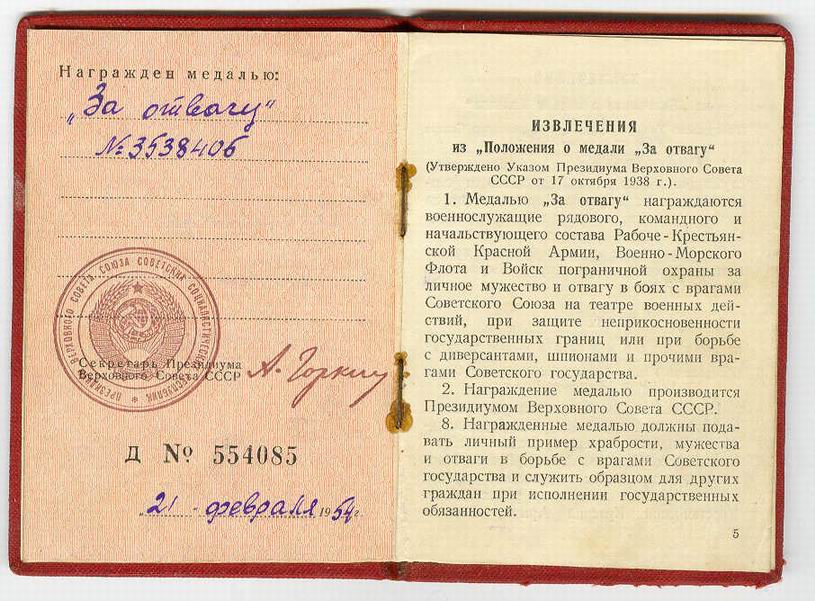 Награжден медалью:
„За отвагу“
№ 3538406
ПРЕЗИДИУМ ВЕРХОВНОГО СОВЕТА СОЮЗА СОВЕТСКИХ СОЦИАЛИСТИЧЕСКИХ РЕСПУБЛИК
Секретарь Президиума
Верховного Совета СССР
А. Горкин
Д № 554085
„21 - февраля 1954 г.
ИЗВЛЕЧЕНИЯ
из „Положения о медали „За отвагу“
(Утверждено Указом Президиума Верховного Совета
СССР от 17 октября 1938 г.).
1. Медалью „За отвагу“ награждаются
военнослужащие рядового, командного и
начальствующего состава Рабоче-Крестьян-
ской Красной Армии, Военно-Морского
Флота и Войск пограничной охраны за
личное мужество и отвагу в боях с врагами
Советского Союза на театре военных дей-
ствий, при защите неприкосновенности
государственных границ или при борьбе
с диверсантами, шпионами и прочими вра-
гами Советского государства.
2. Награждение медалью производится
Президиумом Верховного Совета СССР.
8. Награжденные медалью должны пода-
вать личный пример храбрости, мужества
и отваги в борьбе с врагами Советского
государства и служить образцом для других
граждан при исполнении государственных
обязанностей.
5